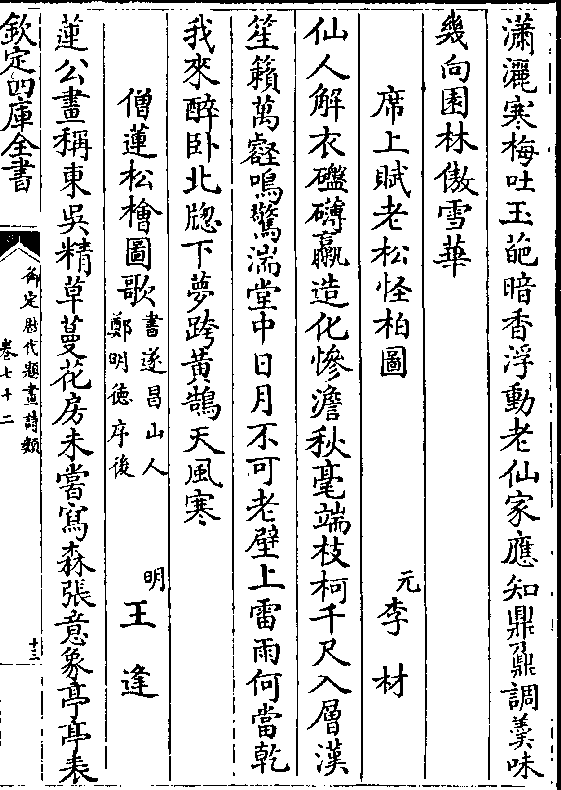 瀟灑寒梅吐玉葩暗香浮動老仙家應知鼎鼐調羹味
幾向園林傲雪華
席上賦老松怪柏圖
元李材
仙人解衣礴磅臝造化慘澹秋毫端枝柯千尺入層漢
笙籟萬壑鳴驚湍堂中日月不可老壁上雷雨何當乾
我來醉卧北牕下夢跨黃鵠天風寒
僧蓮松檜圖歌
書遂昌山人
鄭明徳序後
明王逢
蓮公畫稱東吳精草蔓花房未嘗寫森張意象亭亭表
欽定四庫全書
御定歷代題畫詩類
卷七十二
十三